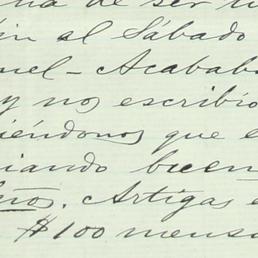 na de ser u
ín el Sábado
nel - Acabab
y nos escribío
iéndonos que e
iando buen
ños. Artigas e
$100 mensu